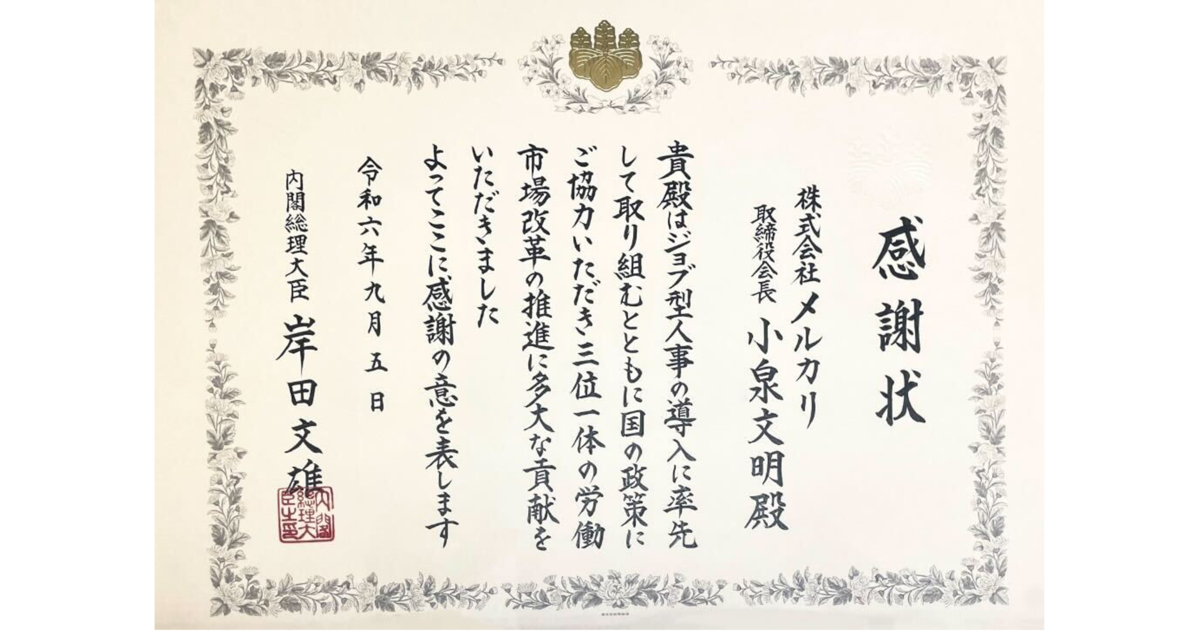 感謝状
株式会社 メルカリ
取締役会長 小泉文明殿
貴殿はジョブ型人事の導入に率先
して取り組むとともに国の政策に
ご協力いただき三位一体の労働
市場改革の推進に多大な貢献を
いただきました
よってここに感謝の意を表します
令和六年九月五日
内閣総理大臣 岸田文雄
内閣
総理大
臣之印